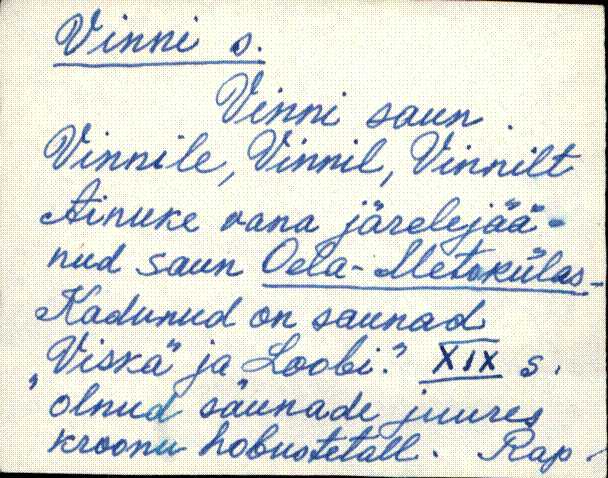 Vinni s.
Vinni saun.
Vinnile, Vinnil, Vinnilt
Ainuke vana järelejää-
nud saun Oela-Metskülas-
Kadunud on saunad
"Viska" ja Loobi." XIX s.
olnud saunade juures
kroonu hobustetall. Rap.